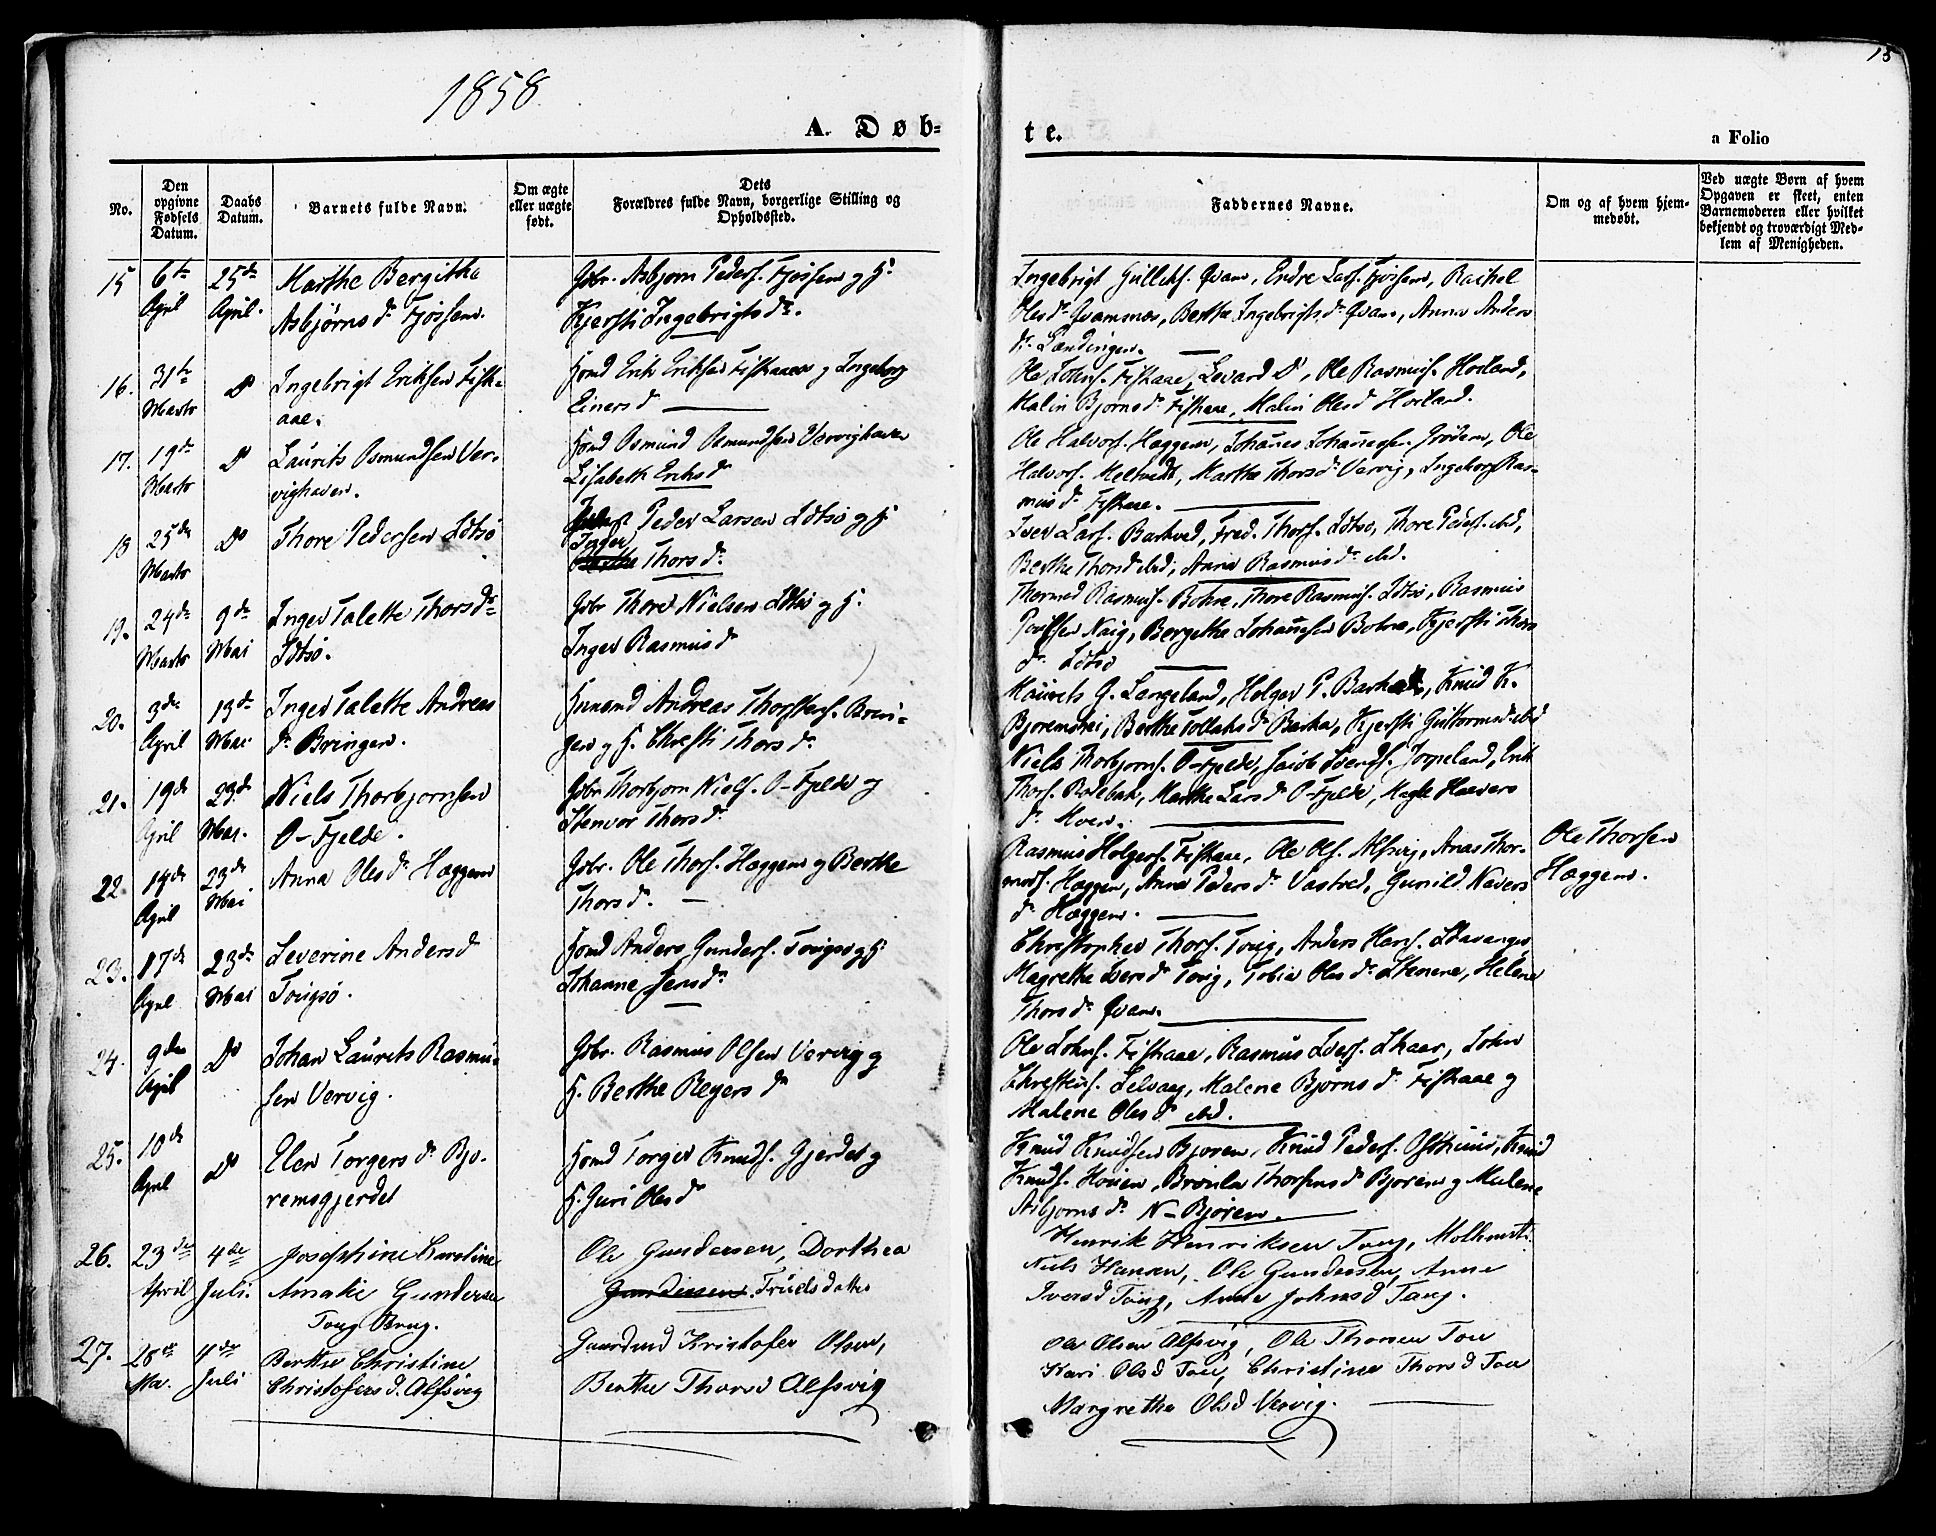 1858
A. Døb=
te.
15
a Folio
No.
Den opgivne Fødsels Datum.
Daabs Datum.
Barnets fulde Navn.
Om ægte eller uægte født.
Dets Forældres fulde Navn, borgerlige Stilling og Opholdssted.
Faddernes Navne.
Om og af hvem hjem-
medøbt.
Ved uægte Børn af hvem
Opgaven er skeet, enten
Barnemoderen eller hvilket
bekjendt og troværdigt Med-
lem af Menigheden.
15 6te April 25de April. Marthe Bergitha
Asbjørns dr Fjøssene.
Gbr. Asbjørn Peders. Fjøssene og H.
Kjersti Ingebrigts dr.
Ingebrigt Gulleks. Qvam, Endre Lars. Fjøssene, Rachel
Ols dr Qvamsnes, Berthe Ingebrigts dr Qvam, Anna Anders
dr
16. 31te Marts Do Ingebrigt Eriksen Fisk-
aae.
Hmd Erik Eriksen Fiskaaen og Ingeborg
Einers d
Ole Johns. Fiskaae, Sevard Do, Ole Rasmus. Horland,
Malin Bjørns dr Fiskaae, Malin Olsd Horland.
17. 19de Marts Do Laurits Osmundsen Ver-
vighaven.
Hmd Osmund Osmundsen Vervighaven
Lisabeth Eriks d
Ole Halvors. Hæggem, Johanes Johannesen, Ole
Halvors. Marthe Thors dr Vervig, Ingeborg Ras-
mus dr Fiskaae.
18 25de Marts Do Thore Pedersen Idtsø
Peder Larsen Idtsø og H.
Inger
Thors dr.
Iver Lars. Barkved, Fred. Thors. Idtsø, Thore Peders. ibd,
Berthe Thorsd ibd, Anna Rasmus dr ibd.
19. 24de Marts 9de Mai Inger Talette Thors dr
Idtsø.
Gbr Thore Nielsen Idtsø og H.
Inger Rasmus d
Thormod Rasmus. Bohre, Thore Rasmus. Idtsø, Rasmus
Poulsen Naig, Bergethe Johannesen Bohre, Kjersti Thors
dr Idtsø
20. 3de April 13de Mai Inger Talette Andreas
dr Bringen.
Andreas Thorstens. Brin-
gen og H. Christi Thors dr.
Maurits G. Langeland, Holger P. Barka, Knud K.
Bjøremshei, Berthe Tollaks dr Barka, Kjersti Guttorms dr ibd
21. 19de April 23de Mai. Niels Thorbjørnsen
O-Fjelde.
Gbr Thorbjørn Niels. O-Fjelde og
Stenvor Thors dr
Niels Thorbjørns. O-Fjelde, Jacob Svends. Jørpeland, Erik
Thors. Marthe Lars dr O-Fjelde,
dr
22. 14de April 23de Mai Anna Ols dr Hæggem
Gbr. Ole Thors. Hæggem og Berthe
Thors d.
Rasmus Holgers. Fiskaae, Ole Ols. Alfsvig, Thor-
mods. Hæggem, Anna Peders dr Vastved, Gunild
dr Hæggem.
Ole Thorsen
Hæggem.
23. 17de April 23de Mai Severine Anders d
Tougsø.
Hmd Anders Gunders. Tougsø og H.
Johanne Jens dr
Christopher Thors. Toug, Anders Hans. Stavanger
Magrethe Ivers dr Toug, Tobia Ols dr Stenene, Helene
Thors dr Qvam.
24. 9de April Do Johan Laurits Rasmu-
sen Vervig.
Gbr. Rasmus Olsen Vervig og
H. Berthe Reyers dr
Ole Johns. Fiskaae, Rasmus Ivers. Skaar, John
Christens. Selvaag, Malene Bjørns dr Fiskaae og
Malene Ols dr ibd.
25. 10de April Do Elen Torgers dr Bjø-
remsgjerdet
Hmd Torger Knuds. Gjerdet og
H. Guri Ols d
Knud Knudsen Bjørem, Knud Peders. Østhuus, Knud
Knuds. Houen, Thorsens d Bjørem og Malene
Asbjørns dr N-Bjørem.
26. 23de April 4de Juli. Josephine Karoline
Amalie Gundersen
Toug Brug.
Ole Gundersen, Dorthea
Gundersen. Truelsdatter
Henrik Henriksen Toug,
Niels Hansen, Ole Gundersen, Anne
Iversd Toug, Anne Johnsd Toug.
27. 28de Mai. 4de Juli Berthe Christine
Christofers d. Alfsvig
Gaardmd Kristofer Olsen,
Berthe Thorsd Alfsvig
Ole Olsen Alfsvig, Ole Thorsen Tou
Kari Olsd Tou, Christine Thorsd Tou
Margrethe Olsd Vervig.